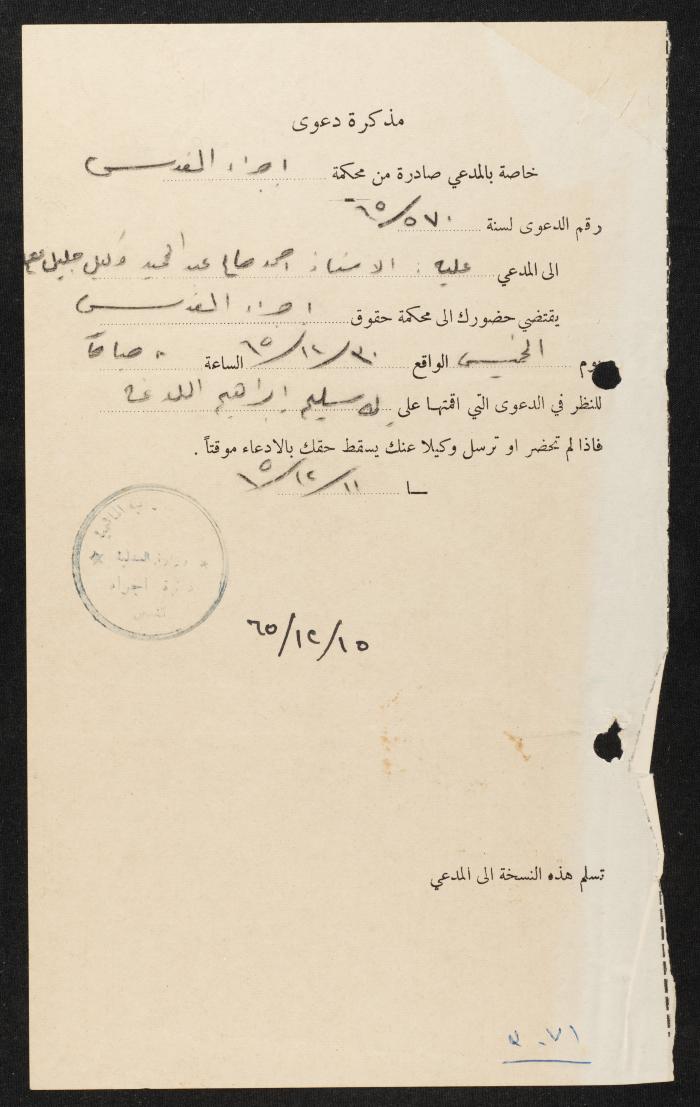 مذكرة دعوى
خاصة بالمدعي صادرة من محكمة اجراء القدس
رقم الدعوى لسنة ٥٧٠/٦٥
الى المدعي عليه : الاستاذ احمد صالح عبد الحميد وكيل جليل
يقتضي حضورك الى محكمة حقوق اجراء القدس
يوم الخميس الواقع ٣٠/١٢/٦٥ الساعة ٨ صباحاً
للنظر في الدعوى التي اقمتها على سليم ابراهيم
فاذا لم تحضر او ترسل وكيلا عنك يسقط حقك بالادعاء موقتاً .
١١/١٢/٦٥
وزارة العدلية
دائرة اجراء
القدس
٦٥/١٢/١٥
تسلم هذه النسخة الى المدعي